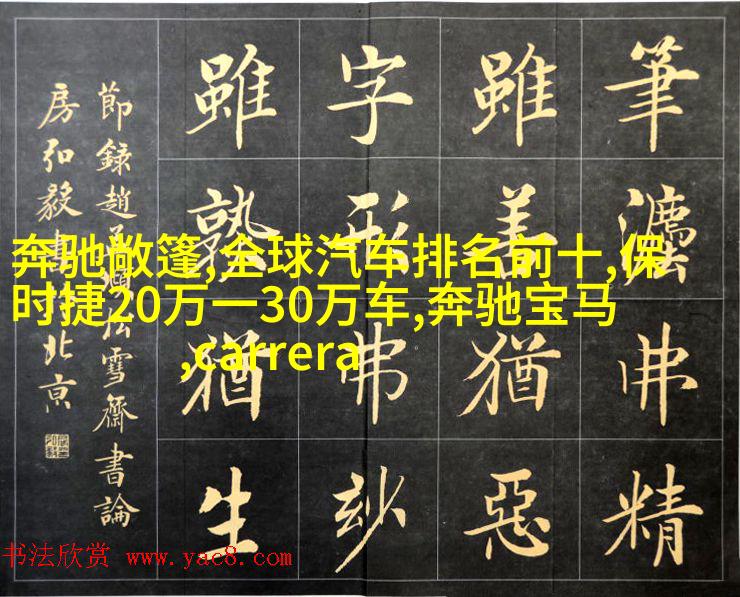 筆灋弗精
雖善猶惡
字形弗玅
雖熟猶生
節錄趙孟頫松雪齋書論
房弘毅書於北京
奔驰敞篷,全球汽车排名前十,保
时捷20万一30万车,奔驰宝马
,carrera
书法欣赏 www.yac8.com